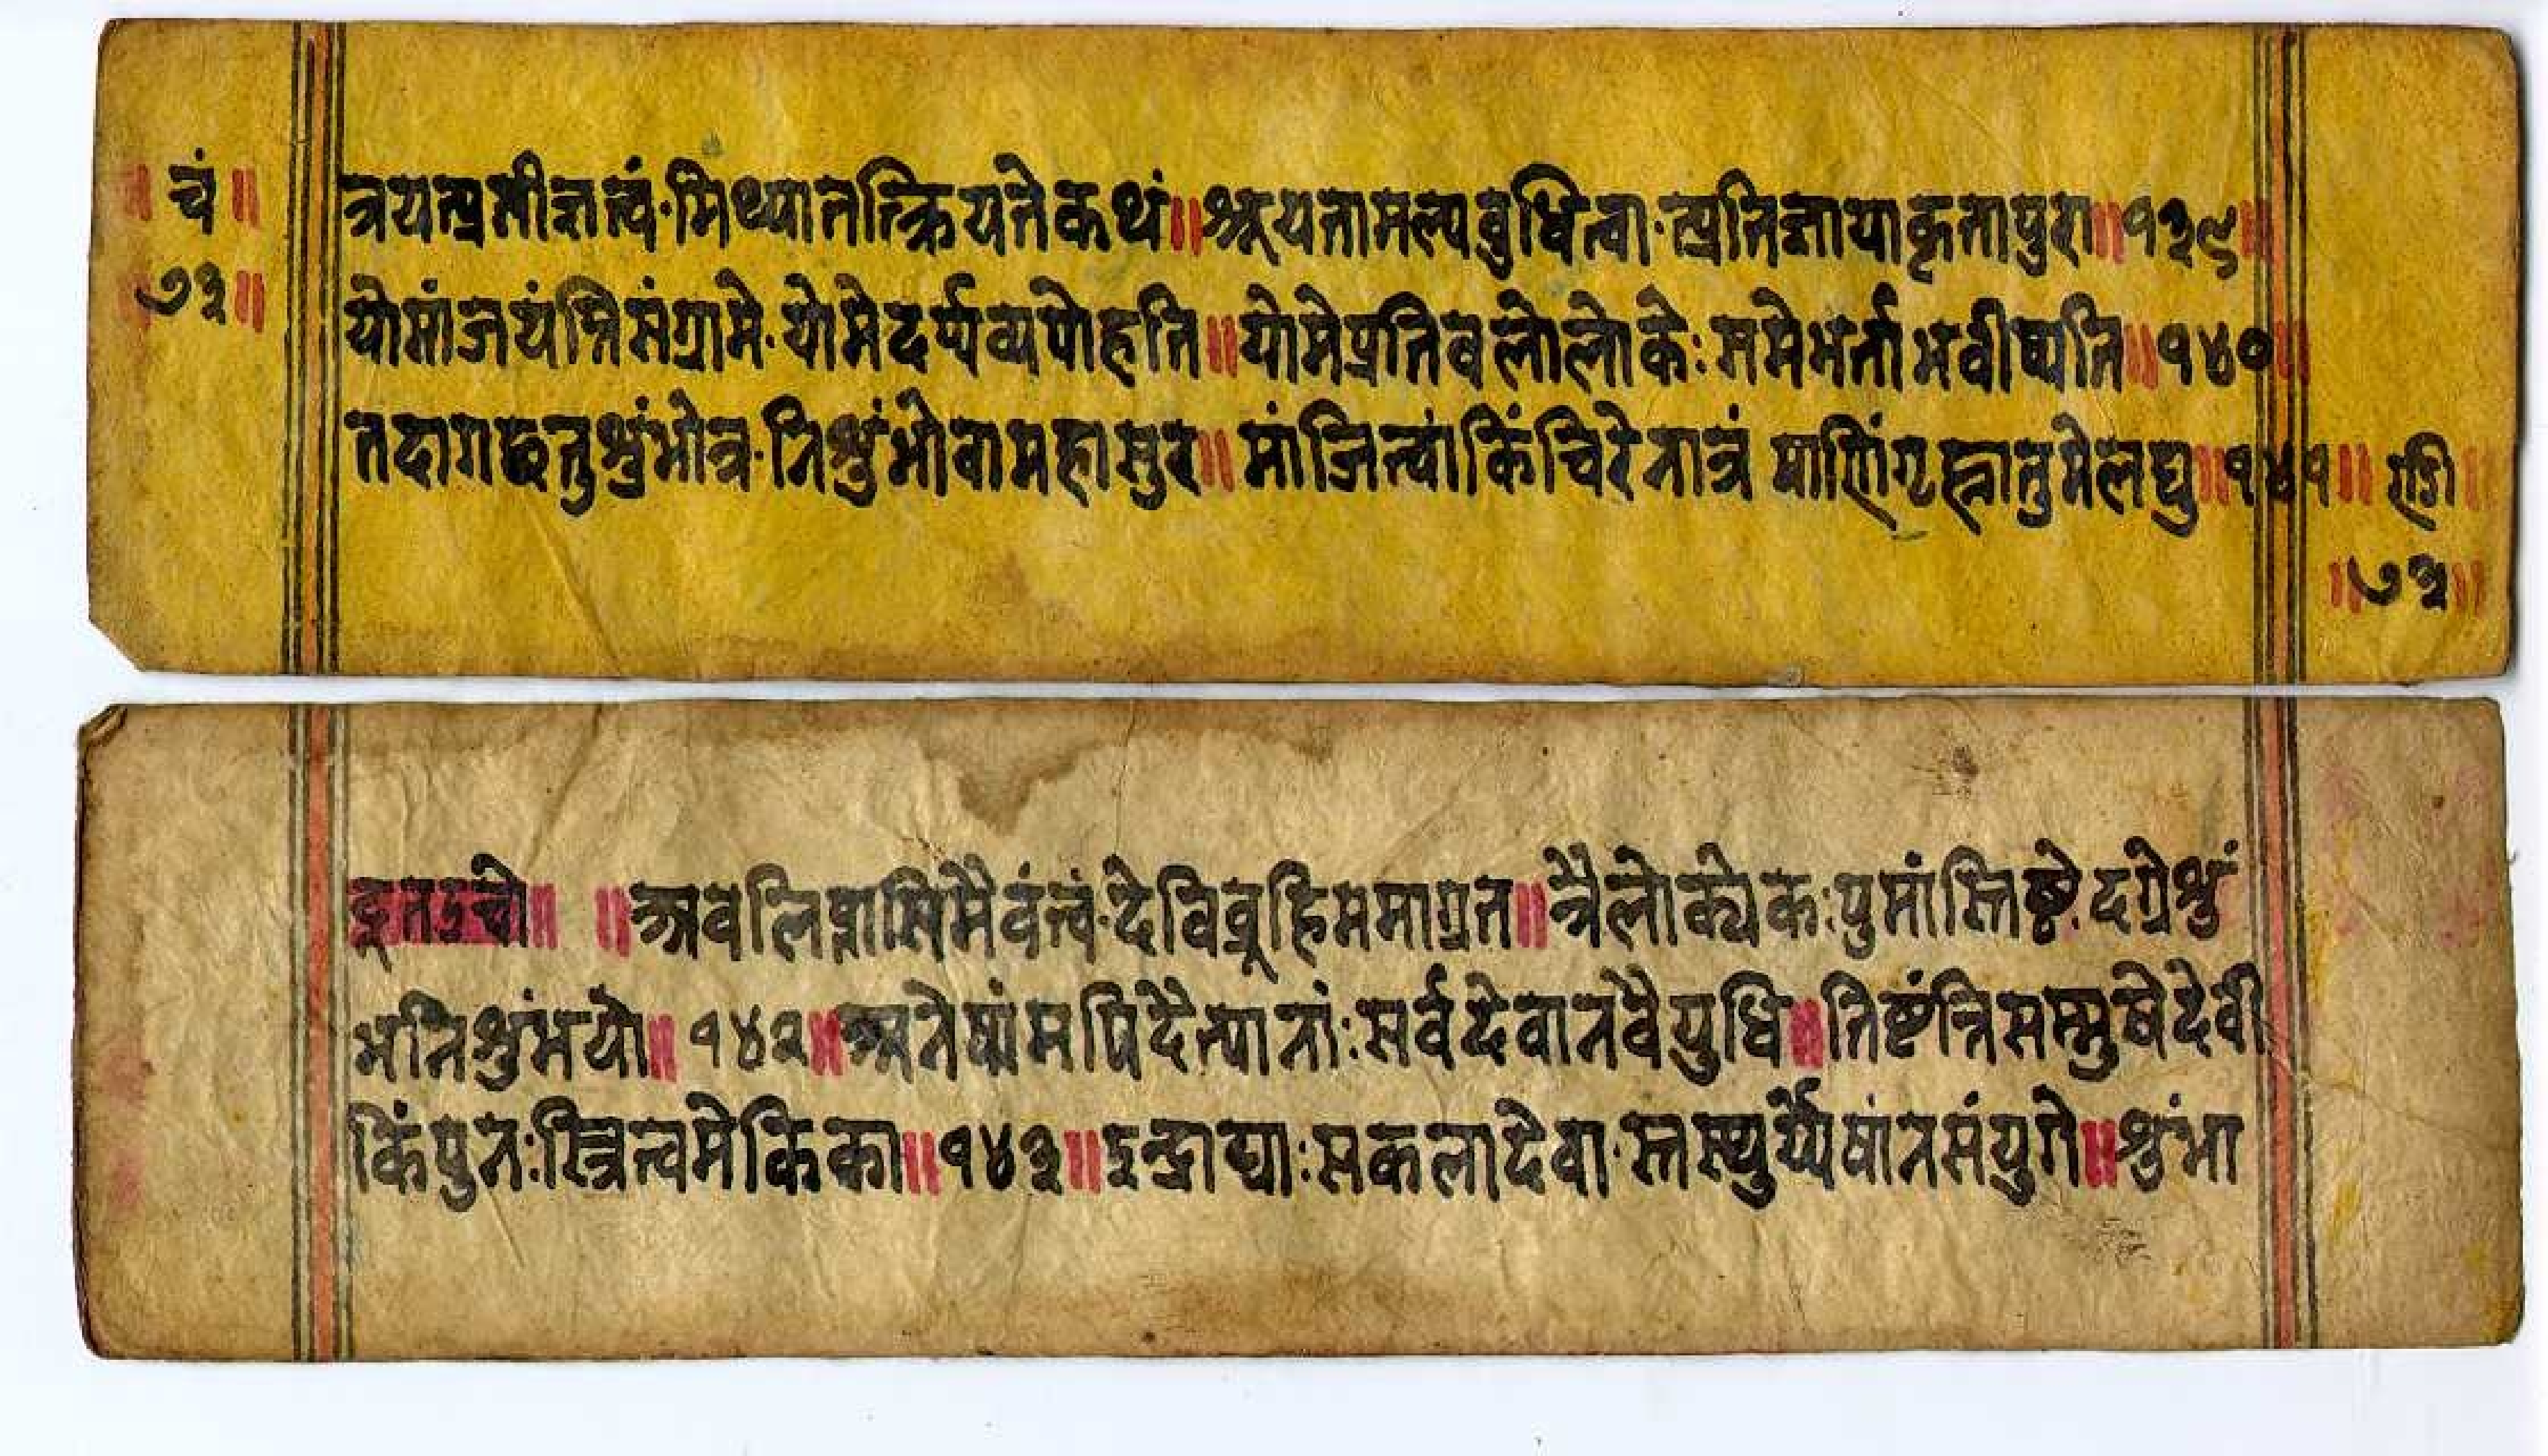 ॥ चं ॥
७३॥
त्रयत्प्रतीज्ञात्वं·मिथ्यातत्क्रियतेकथं॥श्रूयतामल्पवुधित्वा·त्प्रतिज्ञायाकृतापुरा॥१३९॥
योमांजयंतिसंग्रामे·योमेदर्प्पव्यपोहति॥योमेप्रतिवलोलोकेः समेभर्ता भवीष्यति॥१४०॥
तदागछतुश्रुंभोत्र·निश्रुंभोवामहासुर॥मांजित्वांकिंचिरेनात्रं पाणिंगृह्नातुमेलघु॥१४१॥
॥७३॥
दूतउवो॥ ॥अवलिप्तासिमैवंत्वं·देविव्रूहिममाग्रत॥त्रैलोक्येकःपुमांस्तिष्टे·दग्रेश्रुं
भनिश्रुंभयो॥१४२॥अनेषांमपिदैत्यानांःसर्वदेवानवैयुधि॥तिष्टंन्तिसम्मुखेदेवी
किंपुनःस्त्रित्वमेकिका॥१४३॥इन्द्राद्याःसकलादेवा·स्तस्थुर्य्येषांनसंयुगे॥श्रुंभा